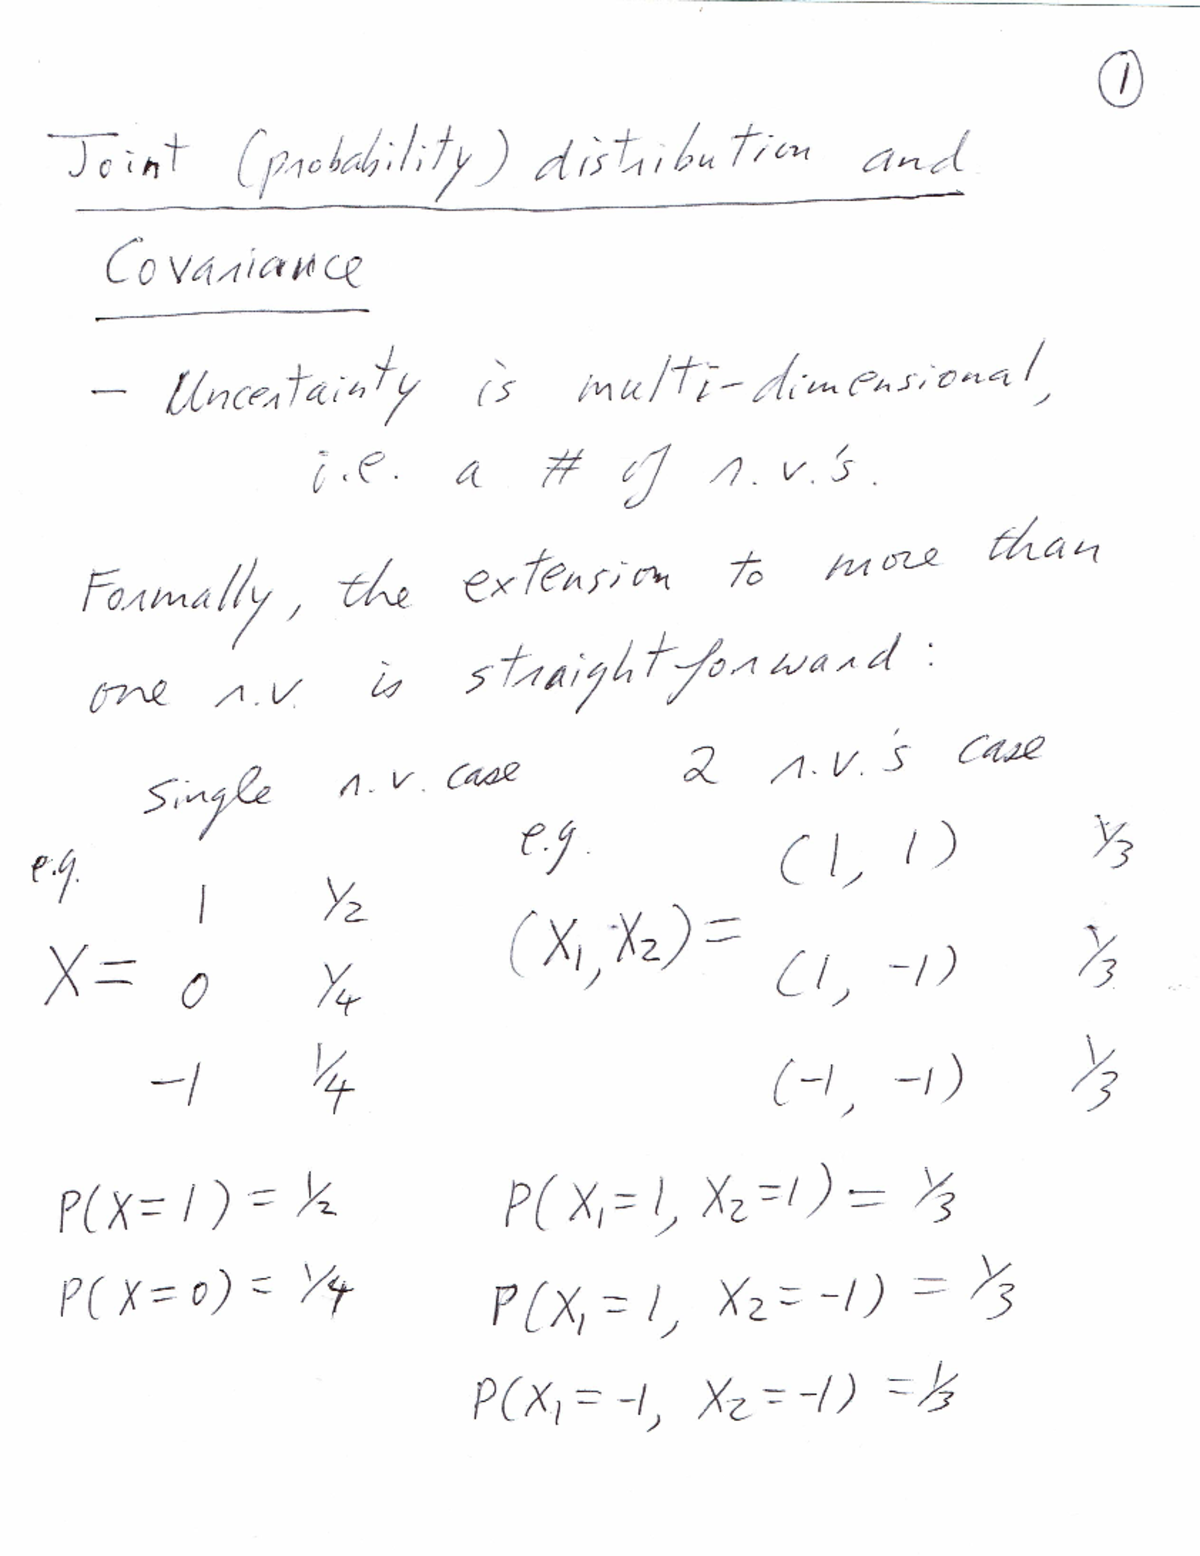 ①
Joint (probability) distribution and
Covariance
- Uncertainty is multi-dimensional,
i.e. a # of r.v.'s.
Formally, the extension to more than
one r.v. is straightforward:
single r.v. case 2 r.v.'s case
e.g. 1 1/2 e.g. (1, 1) 1/3
X = 0 1/4 (X₁, X₂) = (1, -1) 1/3
-1 1/4 (-1, -1) 1/3
P(X=1) = 1/2 P(X₁=1, X₂=1) = 1/3
P(X=0) = 1/4 P(X₁=1, X₂=-1) = 1/3
P(X₁=-1, X₂=-1) = 1/3